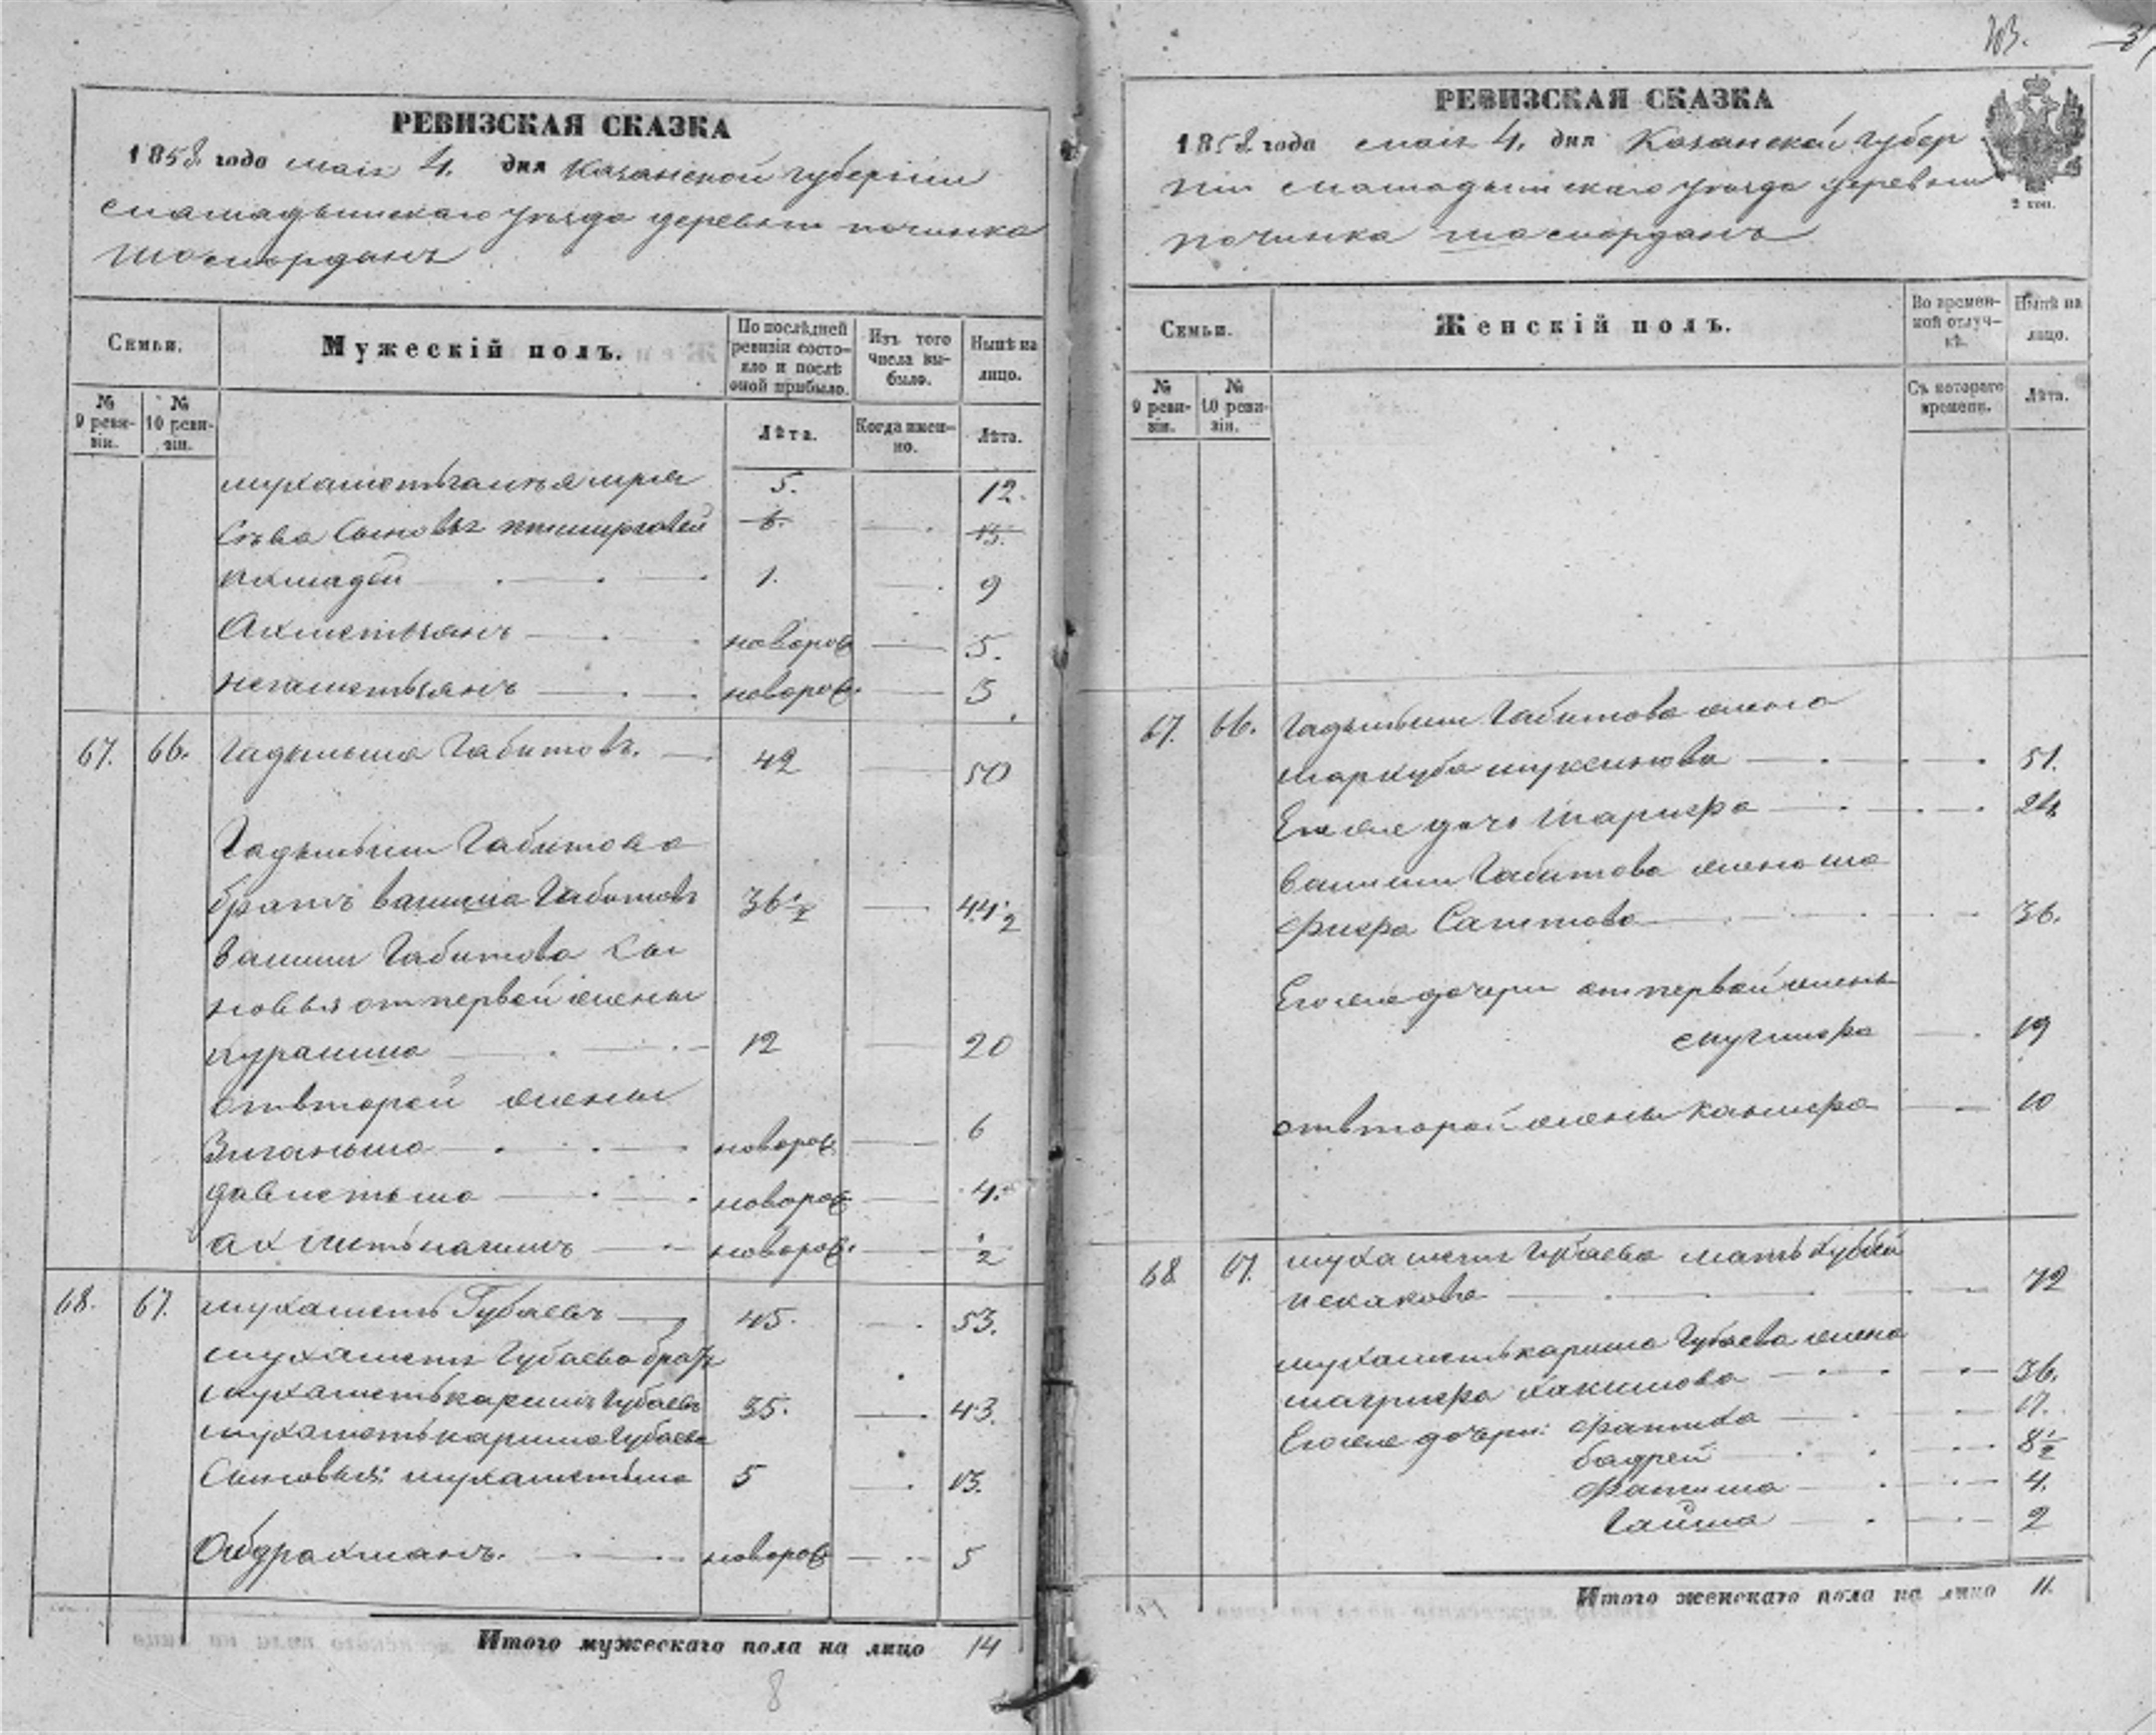 РЕВИЗСКАЯ СКАЗКА
1858 года мая 4. дня Казанской губернии
Мамадышскаго уѣзда деревни починка
Ташкорданъ
Семьи.
Мужескій полъ.
По послѣдней ревизіи состояло и послѣ оной прибыло.
Изъ того числа выбыло.
Нынѣ на лицо.
№ 9 ревизіи.
№ 10 ревизіи.
Лѣта.
Когда именно.
Лѣта.
5. 12.
сыновья 6. 15.
Ахмадей 1. 9
Ахметьянъ новорож 5.
Негаметьянъ новорож. 3
67. 66. Гадыльша Габитовъ. 42 50
Габитова
братъ Валиша Габитовъ 36½ 44½
Валиши Габитова сы
новья от первой жены
Нураша 12 20
от второй жены
Зиганьша новорож 6
Давлетьша новорож 4.
новорож. ½
68. 67. Мухаметь Губаевъ 45. 53.
Мухаметя Губаева братъ
Мухаметькаримъ Губаевъ 35. 43.
Мухаметькарима Губаева
Сыновья: Мухаметьша 5 13.
Абдрахманъ. новорож 5
Итого мужескаго пола на лицо 14
8
РЕВИЗСКАЯ СКАЗКА
1858 года мая 4. дня Казанской губер
ніи Мамадышскаго уѣзда деревни
починка Ташкорданъ
2 коп.
Семьи.
Женскій полъ.
Во временной отлучкѣ.
Нынѣ на лицо.
№ 9 ревизіи.
№ 10 ревизіи.
Съ котораго времени.
Лѣта.
67. 66. Габитова жена
Маркуба Муксинова 51.
Его же дочь 24
Валиши Габитова жена Ша
фигра Сагитова 36.
Его же дочери от первой жены
19
от второй жены 10
68 67. Мухаметя Губаева мать
Искакова 72
Мухаметькарима Губаева жена
Хакимова 36.
Его же дочери: Фатиха 17.
Бадрей 8½
Фатима 4.
Гайша 2
Итого женскаго пола на лицо 11.